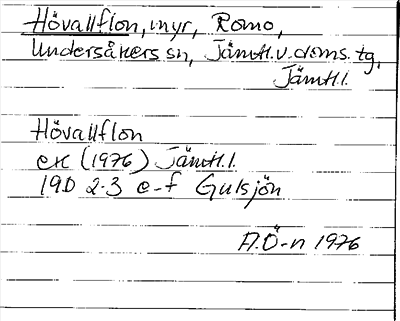 Hövallflon, myr, Romo,
Undersåkers sn, Jämtl.v.doms.tg,
Jämtl.l.
Hövallflon
ek (1976) Jämtl.l.
19D 2-3 e-f Gulsjön
A.Ö-n 1976